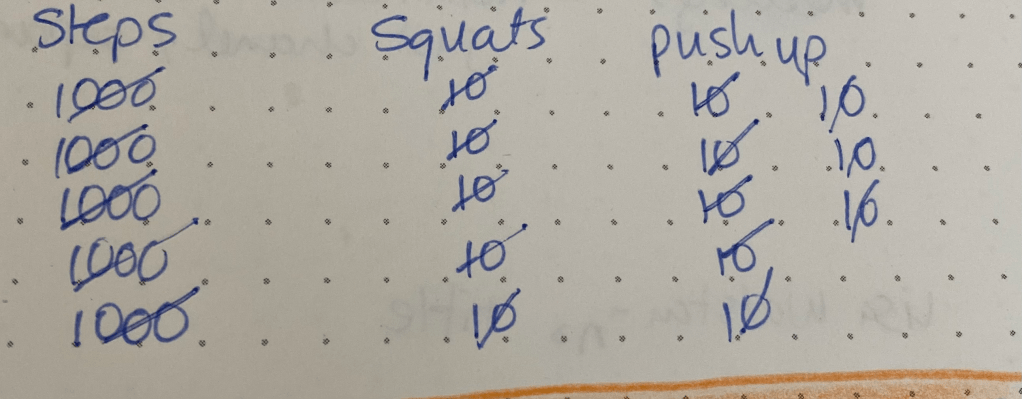 Steps Squats push up
1000 10 10 10
1000 10 10 10
1000 10 10 10
1000 10 10
1000 10 10